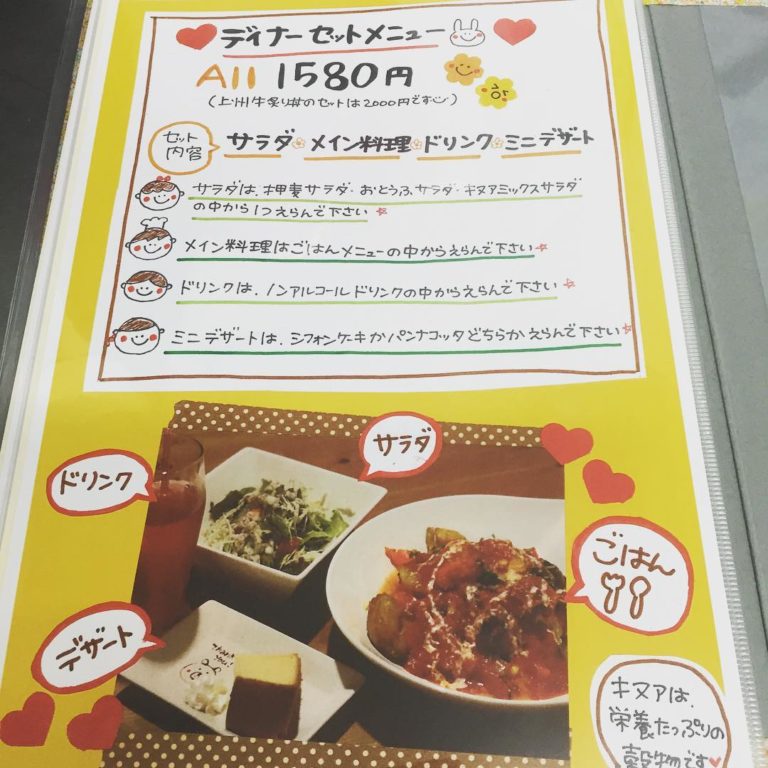 ディナーセットメニュー
All 1580円
(上州牛炙り丼のセットは2000円です)
セット
内容
サラダ メイン料理 ドリンク ミニデザート
サラダは、押麦サラダ・おとうふサラダ・キヌアミックスサラダ
の中から1つえらんで下さい
メイン料理はごはんメニューの中からえらんで下さい
ドリンクは、ノンアルコールドリンクの中からえらんで下さい
ミニデザートは、シフォンケーキかパンナコッタどちらかえらんで下さい
サラダ
ドリンク
ごはん
デザート
キヌアは、
栄養たっぷりの
穀物です